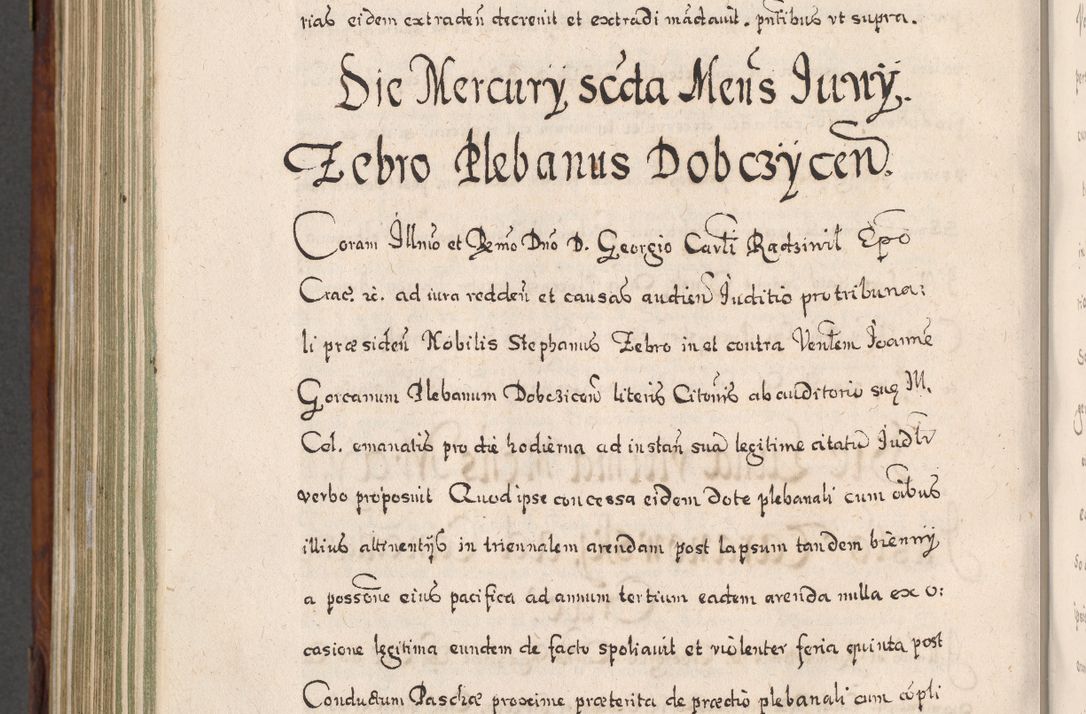 rias eidem extradeñ decrevit et extradi mãdavit. pñtibus vt supra.
Die Mercurÿ scda Meñs Iunÿ.
Zebro Plebanus Dobczÿceñ.
Coram Illmo et Rmo Dno D. Georgio Carlĩ Radziwil Epo
Crac. zc. ad iura reddeñ et causas audieñ Iuditio pro tribuna:
li præsideñ Nobilis Stephanus Zebro in et contra Venlem Ioannẽ
Gorcanum Plebanum Dobcziceñ literis Citoñis ab auditorio suę Ill.
Cel. emanatis pro die hodierna ad instañ suã legitime citatũ Iudlr
verbo proposuit Quod ipse concessa eidem dote plebanali cum oĩbus
illius attinentÿs in triennalem arendam post lapsum tandem biennÿ
a possone eius pacifica ad annum tertium eadem arenda nulla ex o:
casione legitima eundem de facto spoliauit et violenter feria quinta post
Conductum Paschæ proxime præterita de prædio plebanali cum cõpli